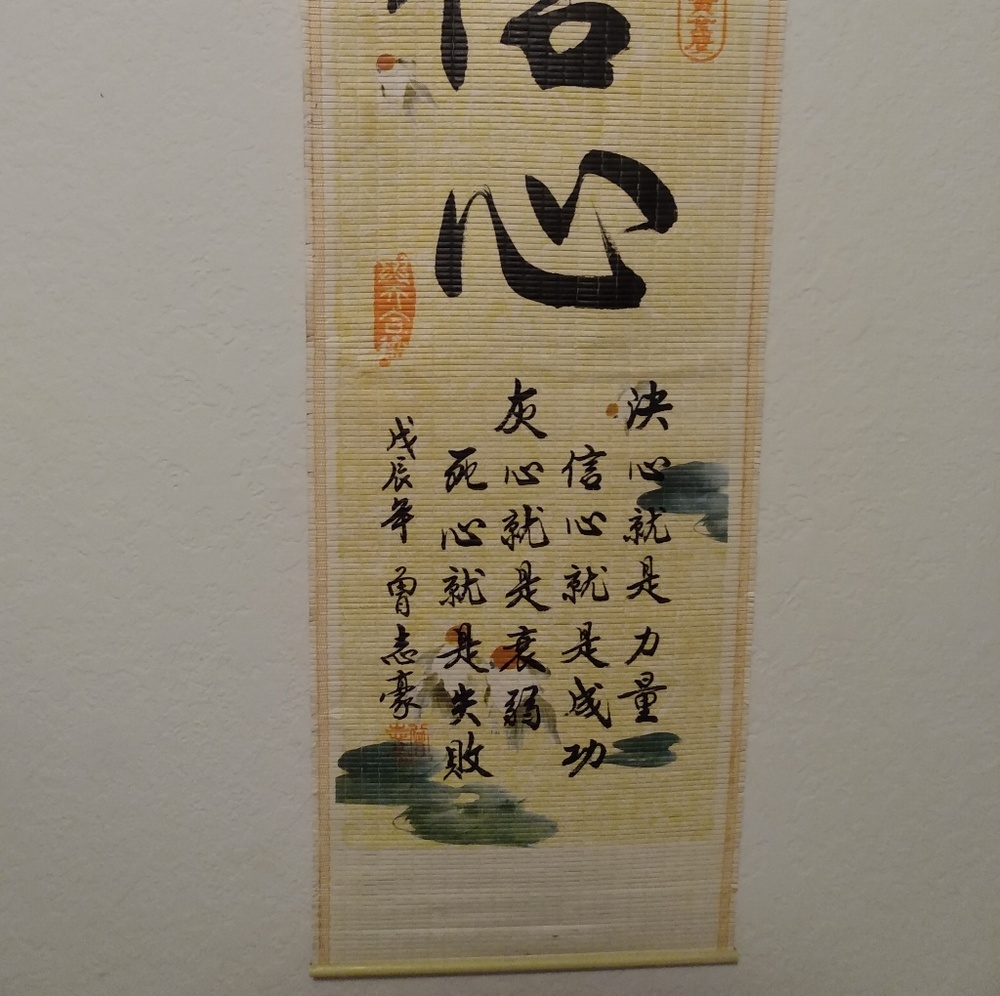 信心
決心就是力量
信心就是成功
灰心就是衰弱
死心就是失敗
戊辰年 曾志豪